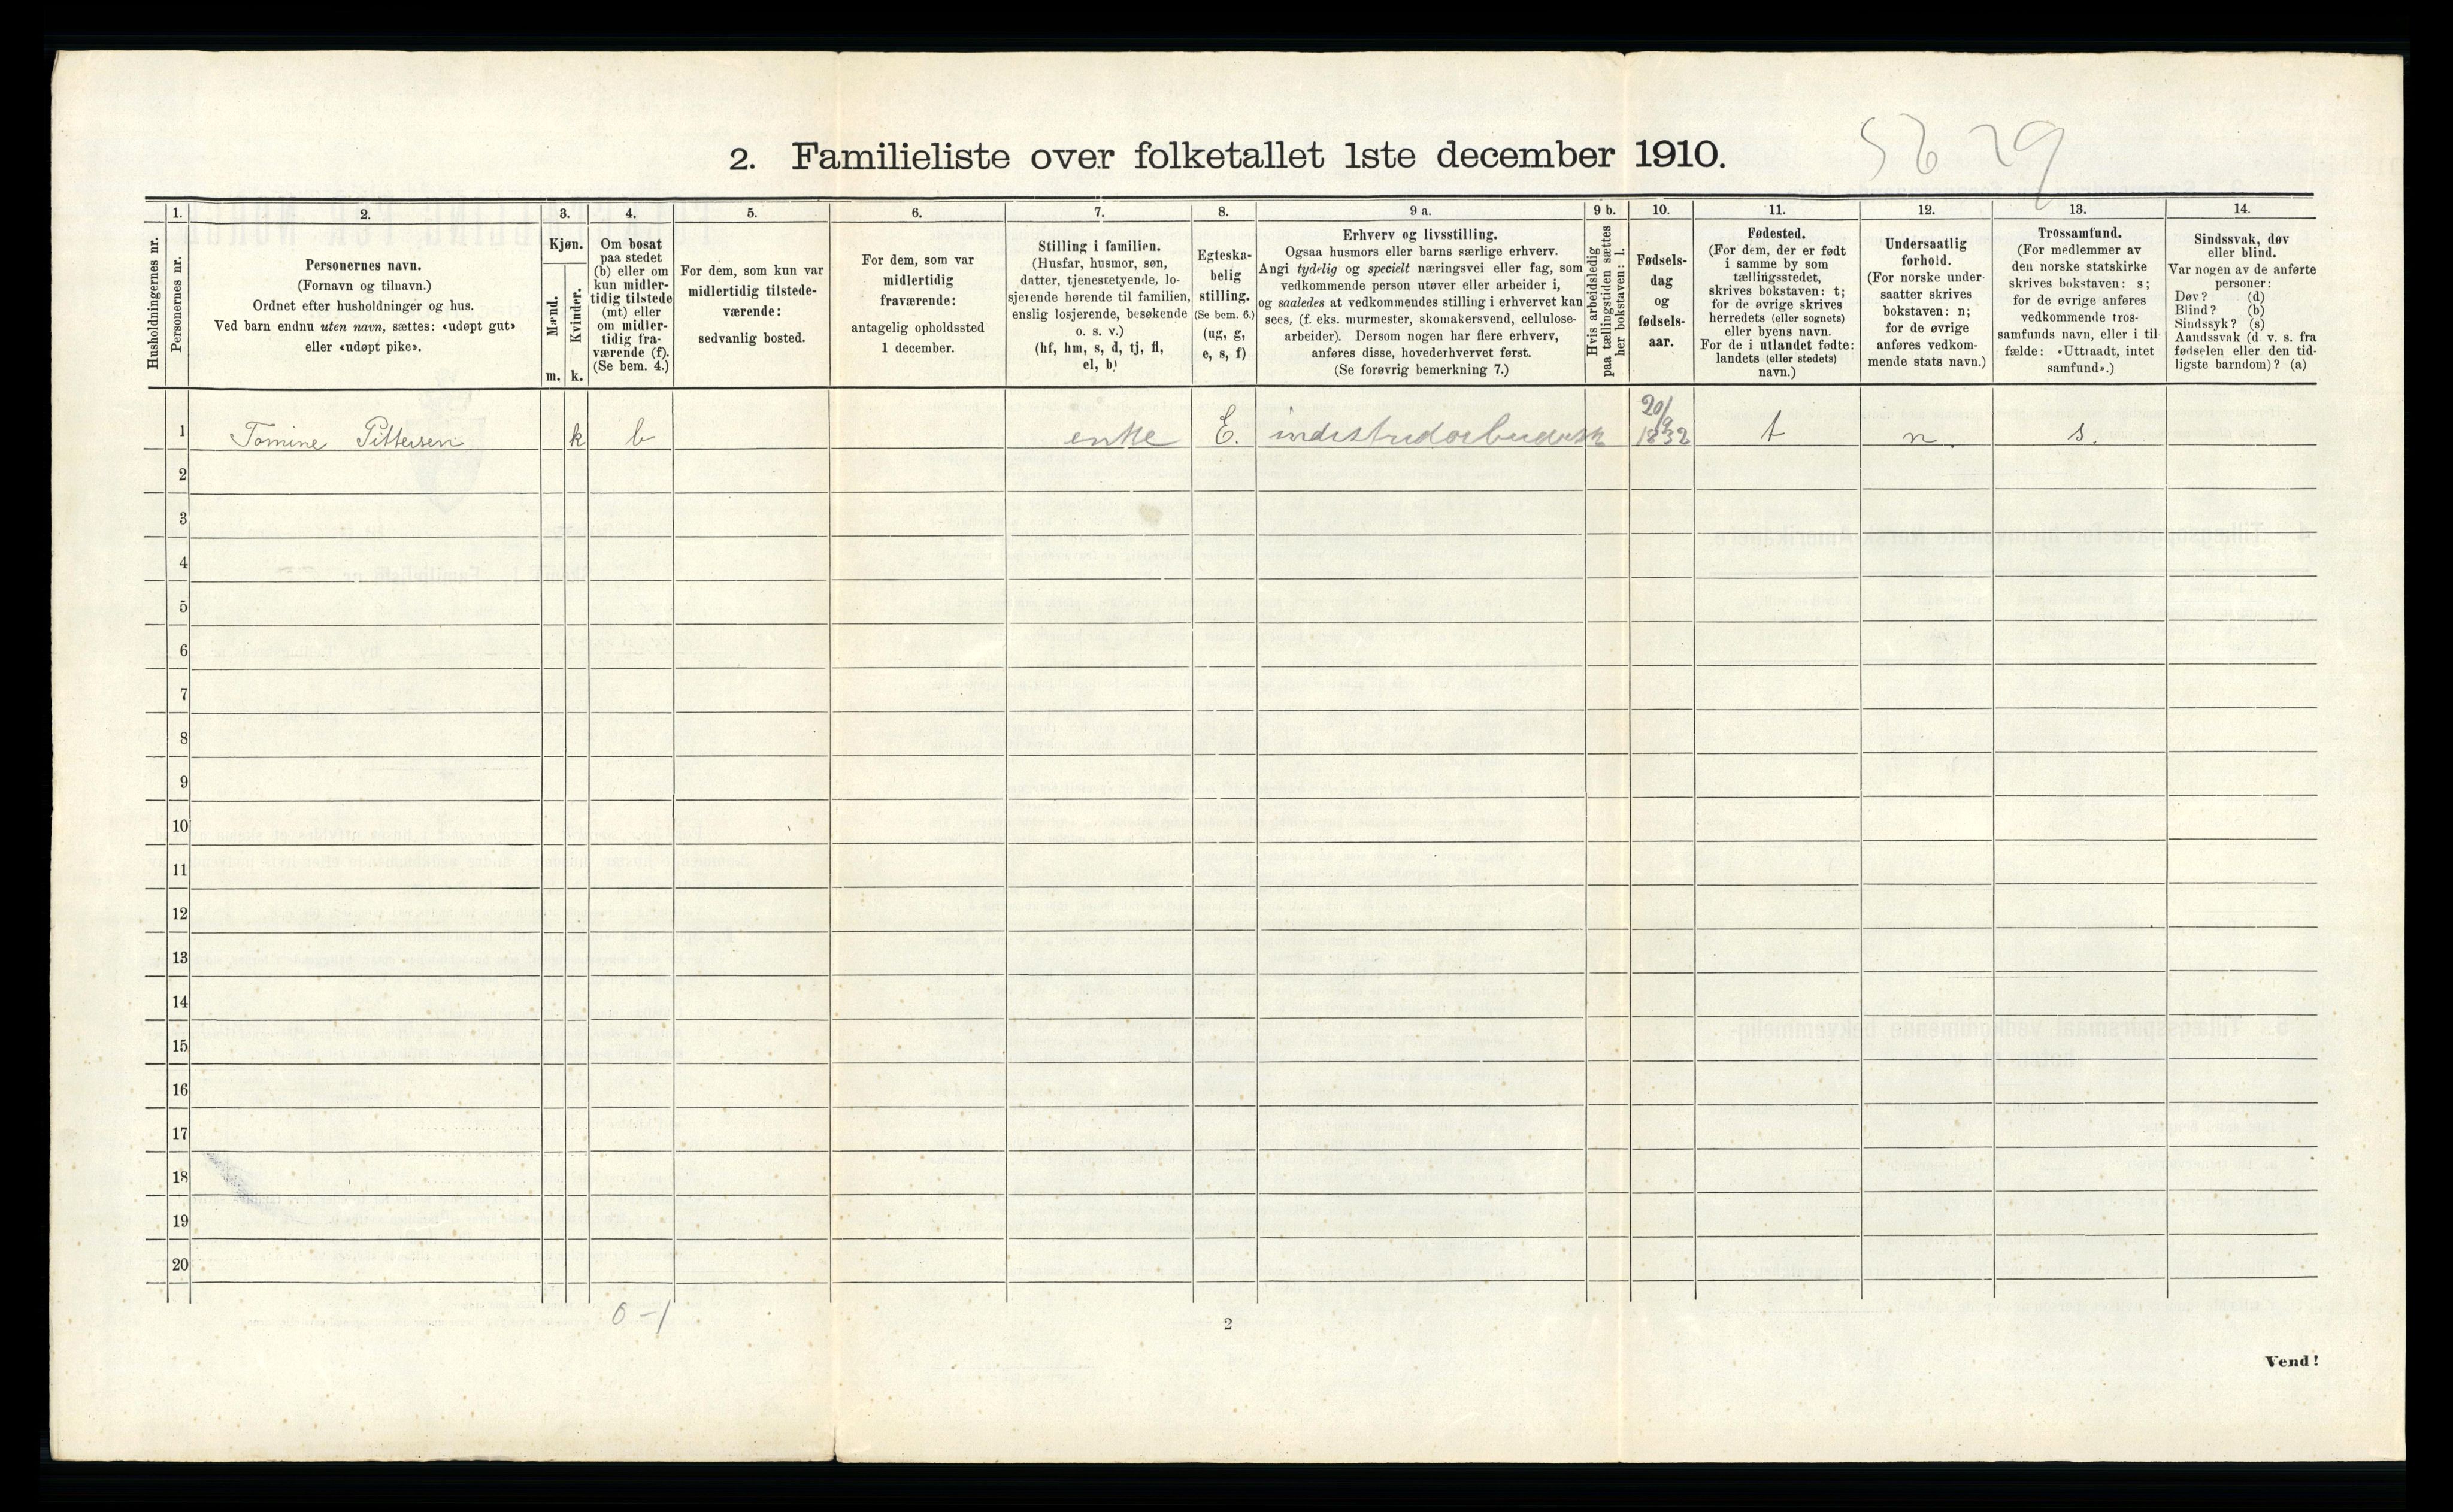 2. Familieliste over folketallet 1ste december 1910.
5629
Husholdningernes nr.
1.
Personernes nr.
2.
Personernes navn.
(Fornavn og tilnavn.)
Ordnet efter husholdninger og hus.
Ved barn endnu uten navn, sættes: «udøpt gut»
eller «udøpt pike».
3.
Kjøn.
Mænd.
m.
Kvinder.
k.
4.
Om bosat
paa stedet
(b) eller om
kun midler-
tidig tilstede
(mt) eller
om midler-
tidig fra-
værende (f).
(Se bem. 4.)
5.
For dem, som kun var
midlertidig tilstede-
værende:
sedvanlig bosted.
6.
For dem, som var
midlertidig
fraværende:
antagelig opholdssted
1 december.
7.
Stilling i familien.
(Husfar, husmor, søn,
datter, tjenestetyende, lo-
sjerende hørende til familien,
enslig losjerende, besøkende
o. s. v.)
(hf, hm, s, d, tj, fl,
el, b)
8.
Egteska-
belig
stilling.
(Se bem. 6.)
(ug, g,
e, s, f)
9 a.
Erhverv og livsstilling.
Ogsaa husmors eller barns særlige erhverv.
Angi tydelig og specielt næringsvei eller fag, som
vedkommende person utøver eller arbeider i,
og saaledes at vedkommendes stilling i erhvervet kan
sees, (f. eks. murmester, skomakersvend, cellulose-
arbeider). Dersom nogen har flere erhverv,
anføres disse, hovederhvervet først.
(Se forøvrig bemerkning 7.)
9 b.
Hvis arbeidsledig
paa tællingstiden sættes
her bokstaven: l.
10.
Fødsels-
dag
og
fødsels-
aar.
11.
Fødested.
(For dem, der er født
i samme by som
tællingsstedet,
skrives bokstaven: t;
for de øvrige skrives
herredets (eller sognets)
eller byens navn.
For de i utlandet fødte:
landets (eller stedets)
navn.)
12.
Undersaatlig
forhold.
(For norske under-
saatter skrives
bokstaven: n;
for de øvrige
anføres vedkom-
mende stats navn.)
13.
Trossamfund.
(For medlemmer av
den norske statskirke
skrives bokstaven: s;
for de øvrige anføres
vedkommende tros-
samfunds navn, eller i til-
fælde: «Uttraadt, intet
samfund».)
14.
Sindssvak, døv
eller blind.
Var nogen av de anførte
personer:
Døv? (d)
Blind? (b)
Sindssyk? (s)
Aandssvak (d. v. s. fra
fødselen eller den tid-
ligste barndom)? (a)
1 Tomine Pittersen k b enke E. 20/9 1832 t n. s.
2
3
4
5
6
7
8
9
10
11
12
13
14
15
16
17
18
19
20
0-1
2
Vend!